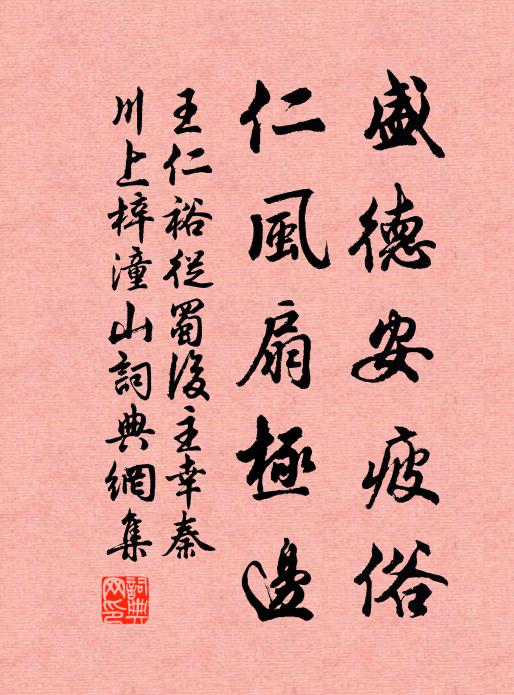 盛德安疲俗
仁風扇極邊
王仁裕從蜀後主幸秦
川上梓潼山詞典網集
詞典網印